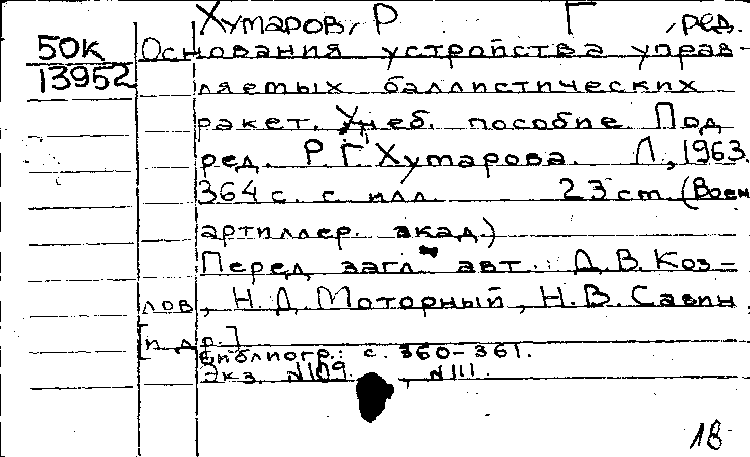 Хумаров, Р Г , ред.
50К Основания устройства управ-
13952 ляемых баллистических
ракет. Учеб. пособие. Под
ред. Р.Г. Хумарова. Л, 1963.
364 с. с илл. 23 cm. (Воен
артиллер. акад.)
Перед загл. авт.: Д.В. Коз-
лов, Н.Д. Моторный, Н.В. Савин,
[и др.]
Библиогр.: с. 360-361.
Экз. N109. , N111.
18